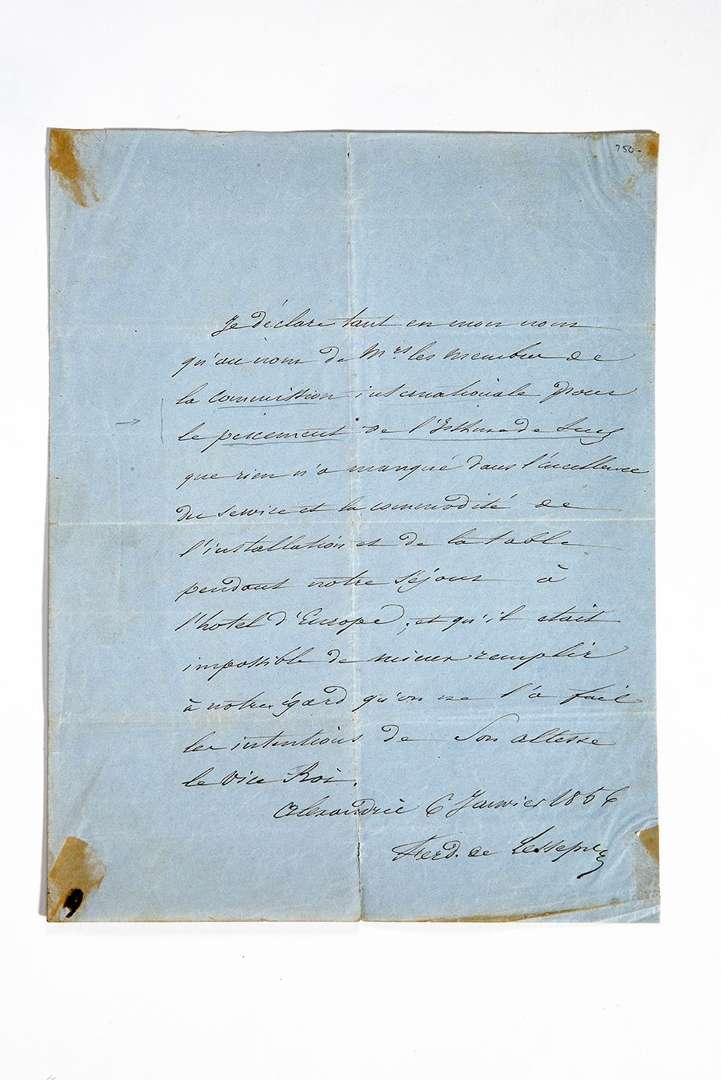 750-
Je déclare tant en mon nom
qu'au nom de Mrs les membres de
la commission internationale pour
le percement de l'Isthme de Suez
que rien n'a manqué dans l'excellence
du service et la commodité de
l'installation et de la table
pendant notre séjour à
l'hotel d'Europe ; et qu'il etait
impossible de mieux remplir
à notre égard qu'on ne l'a fait
les intentions de Son altesse
le Vice Roi.
Alexandrie 6 Janvier 1856
Ferd. de Lesseps